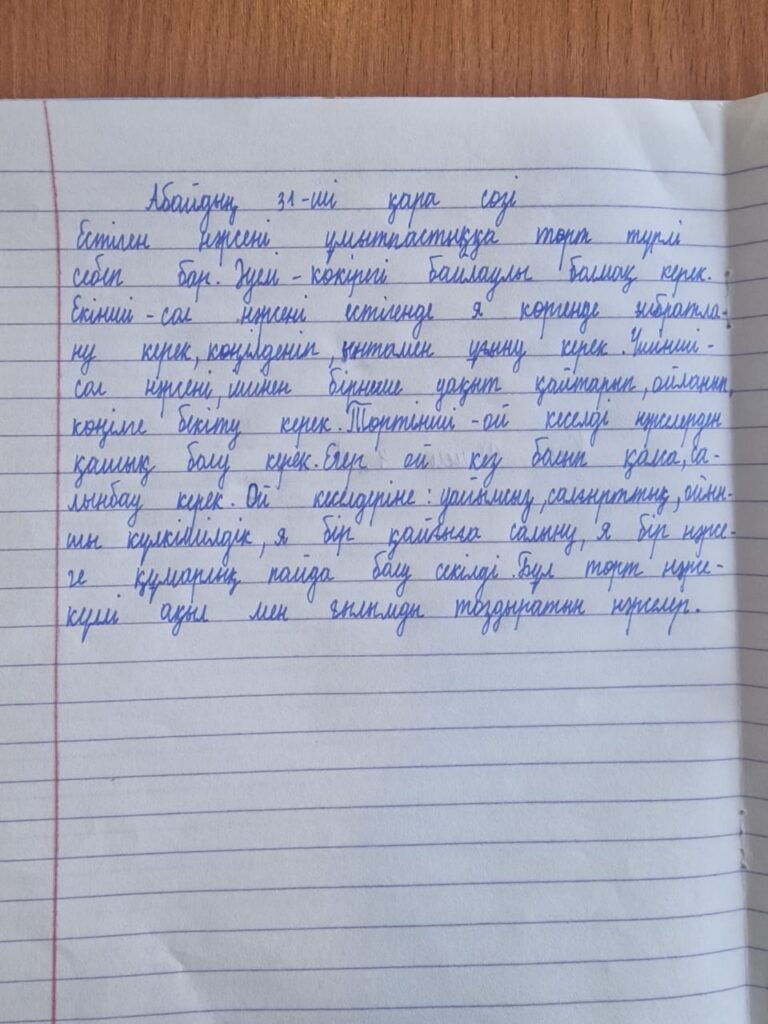 Абайдың 31-ші қара сөзі
Естіген нәрсені ұмытпастыққа төрт түрлі
себеп бар. Әуелі - көкірегі байлаулы болмақ керек.
Екінші - сол нәрсені естігенде я көргенде ғибратла-
ну керек, көңілденіп, ынтамен ұғыну керек. Үшінші -
сол нәрсені, ішінен бірнеше уақыт қайтарып, ойланып,
көңілге бекіту керек. Төртінші - ой кеселді нәрселерден
қашық болу керек. Егер ой кез болып қалса, са-
лынбау керек. Ой кеселдеріне: уайымсыз, салғырттық, ойын-
шы күлкішілдік, я бір қайғыға салыну, я бір нәрсе-
ге құмарлық пайда болу секілді. Бұл төрт нәрсе-
күллі ақыл мен ғылымды тоздыратын нәрселер.